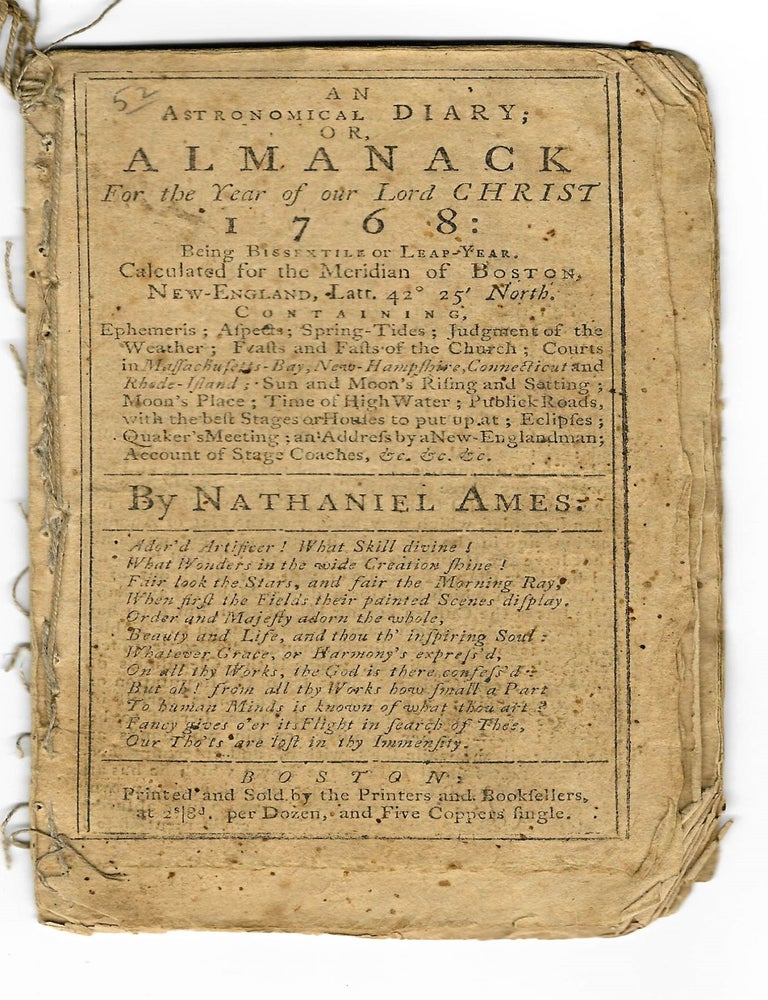 52
AN
ASTRONOMICAL DIARY;
OR,
ALMANACK
For the Year of our Lord CHRIST
1768:
Being BISSEXTILE or LEAP-YEAR.
Calculated for the Meridian of BOSTON,
NEW-ENGLAND, Latt. 42° 25′ North.
CONTAINING,
Ephemeris; Aſpects; Spring-Tides; Judgment of the
Weather; Feaſts and Faſts of the Church; Courts
in Maſſachuſetts-Bay, New-Hampſhire, Connecticut and
Rhode-Iſland; Sun and Moon's Riſing and Setting;
Moon's Place; Time of High Water; Publick Roads,
with the beſt Stages or Houſes to put up at; Eclipſes;
Quaker's Meeting; an Addreſs by a New-Englandman;
Account of Stage Coaches, &c. &c. &c.
By NATHANIEL AMES.
Ador'd Artificer! What Skill divine!
What Wonders in the wide Creation ſhine!
Fair look the Stars, and fair the Morning Ray,
When firſt the Fields their painted Scenes diſplay.
Order and Majeſty adorn the whole,
Beauty and Life, and thou th' inſpiring Soul:
Whatever Grace, or Harmony's expreſs'd,
On all thy Works, the God is there confeſs'd:
But oh! from all thy Works how ſmall a Part
To human Minds is known of what thou art?
Fancy gives o'er its Flight in ſearch of Thee,
Our Tho'ts are loſt in thy Immenſity.
BOSTON:
Printed and Sold by the Printers and Bookſellers,
at 2s|8d. per Dozen, and Five Coppers ſingle.